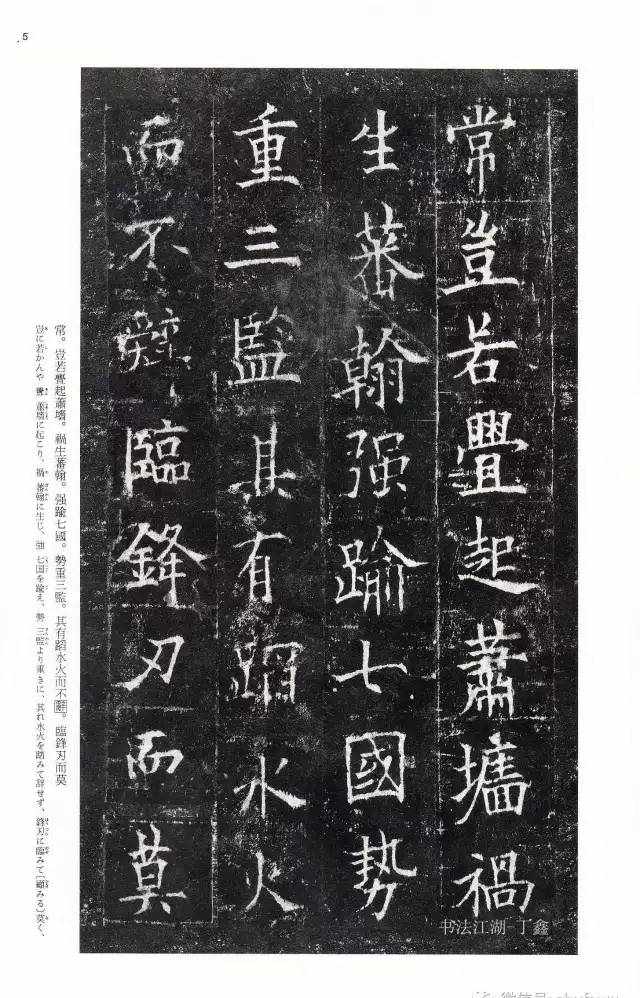 5
常豈若舋起蕭墻禍
生蕃翰强踰七國勢
重三監其有蹈水火
而不辭臨鋒刃而莫
常。豈若舋起蕭墻。禍生蕃翰。强踰七國。勢重三監。其有蹈水火而不辭。臨鋒刃而莫
豈に若かんや 舋 蕭墻に起こり、禍 蕃翰に生じ、強 七国を踰え、勢 三監より重きに、其れ水火を踏みて辞せず、鋒刃に臨みて〔顧みる〕莫く、
书法江湖-丁鑫